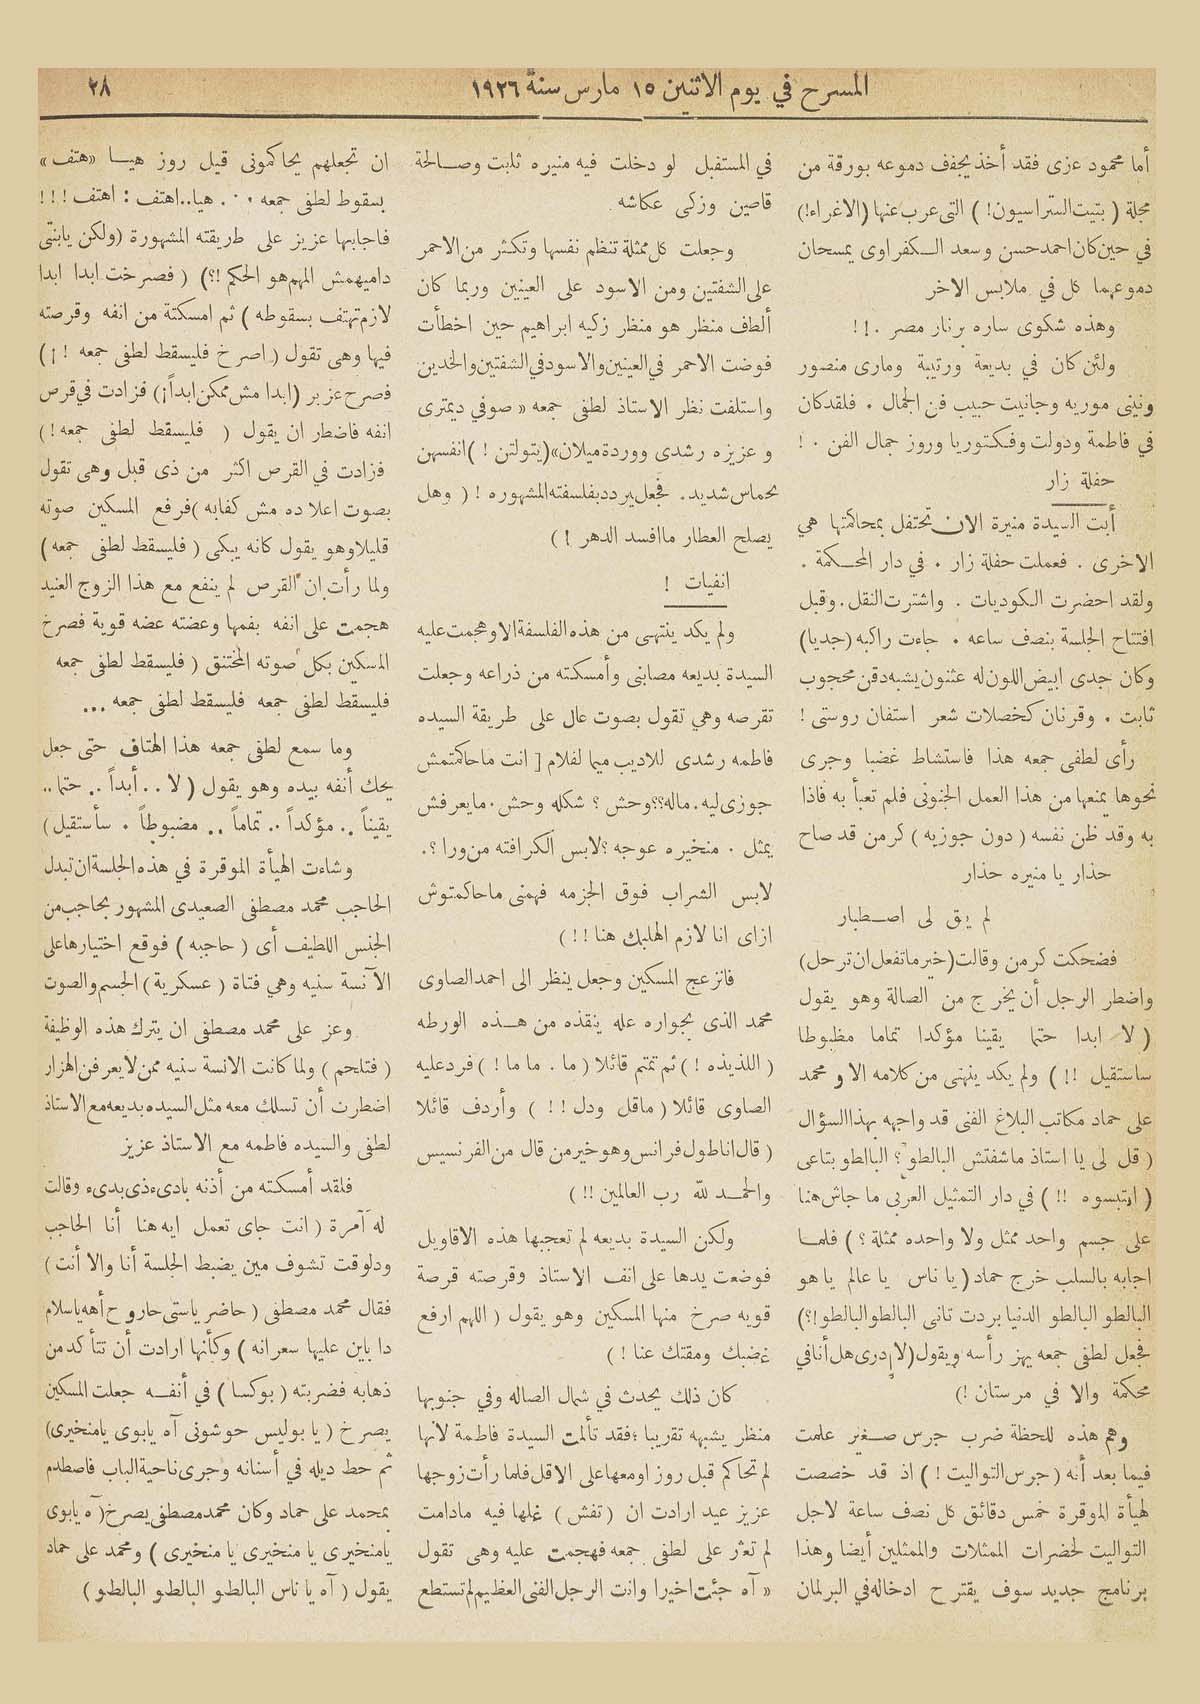 المسرح في يوم الاثنين ١٥ مارس سنة ١٩٢٦
٢٨
أما محمود عزى فقد أخذ يجفف دموعه بورقة من
مجلة ( بتيت الستراسيون! ) التى عرب عنها (الاغراء!)
في حين كان احمد حسن وسعد الكفراوى يمسحان
دموعهما كل في ملابس الاخر
وهذه شكوى ساره برنار مصر ٠!!
ولئن كان في بديعة ورتيبة ومارى منصور
ونينى موريه وجانيت حبيب فن الجمال ٠ فلقد كان
في فاطمة ودولت وفكتوريا وروز جمال الفن ٠ !
حفلة زار
أبت السيدة منيرة الان تحتفل بمحاكمتها هي
الاخرى . فعملت حفلة زار . في دار المحكمة .
ولقد احضرت الكوديات . واشترت النقل . وقبل
افتتاح الجلسة بنصف ساعه . جاءت راكبه (جديا)
وكان جدى ابيض اللون له عثنون يشبه دقن محجوب
ثابت . وقرنان كخصلات شعر استفان روستى !
رأى لطفى جمعه هذا فاستشاط غضبا وجرى
نحوها يمنعها من هذا العمل الجنونى فلم تعبأ به فاذا
به وقد ظن نفسه ( دون جوزيه ) كرمن قد صاح
حذار يا منيره حذار
لم يبق لى اصطبار
فضحكت كرمن وقالت (خير ما تفعل ان ترحل)
واضطر الرجل أن يخرج من الصالة وهو يقول
( لا ابدا حتما يقينا مؤكدا تماما مظبوطا
ساستقيل !! ) ولم يكد ينهنى من كلامه الا و محمد
على حماد مكاتب البلاغ الفنى قد واجهه بهذا السؤال
( قل لى يا استاذ ما شفتش البالطو ؟ البالطو بتاعى
( ارتبسوه !! ) في دار التمثيل العربى ما جاش هنا
على جسم واحد ممثل ولا واحده ممثلة ؟ ) فلما
اجابه بالسلب خرج حماد ( يا ناس يا عالم يا هو
البالطو البالطو الدنيا بردت تانى البالطو البالطو!؟)
فجعل لطفى جمعه يهز رأسه ويقول (لا ادرى هل أنا في
محكمة والا في مرستان !)
وهم هذه للحظة ضرب جرس صغير علمت
فيما بعد أنه ( جرس التواليت ! ) اذ قد خصصت
لهيأة الموقرة خمس دقائق كل نصف ساعة لاجل
التواليت لحضرات الممثلات والممثلين أيضا وهذا
برنامج جديد سوف يقترح ادخاله في البرلمان
في المستقبل لو دخلت فيه منيره ثابت وصالحة
قاصين وزكى عكاشه
وجعلت كل ممثلة تنظم نفسها وتكثر من الاحمر
على الشفتين ومن الاسود على العينين وربما كان
ألطف منظر هو منظر زكيه ابراهيم حين اخطأت
فوضت الاحمر في العينين والاسود في الشفتين والخدين
واستلفت نظر الاستاذ لطفى جمعه « صوفي ديمترى
و عزيزه رشدى ووردة ميلان» (يتولتن ! ) انفسهن
بحماس شديد. فجعل يردد بفلسفته المشهوره ! ( وهل
يصلح العطار ما افسد الدهر ! )
انفيات !
ولم يكد ينتهى من هذه الفلسفة الا وهجمت عليه
السيدة بديعه مصابنى وأمسكته من ذراعه وجعلت
تقرصه وهي تقول بصوت عال على طريقة السيده
فاطمه رشدى للاديب ميما لفلام [ انت ما حاكمتمش
جوزى ليه. ماله؟؟ وحش ؟ شكله وحش . ما يعرفش
يمثل . منخيره عوجه ؟ لابس الكرافته من ورا ؟.
لابس الشراب فوق الجزمه فهمنى ما حاكمتوش
ازاى انا لازم اهلبك هنا !! )
فانزعج المسكين وجعل ينظر الى احمد الصاوى
محمد الذى بجواره عله ينقذه من هذه الورطه
( اللذيذه ! ) ثم تمتم قائلا ( ما . ما ما ! ) فرد عليه
الصاوى قائلا ( ما قل ودل !! ) وأردف قائلا
( قال اناطول فرانس وهو خير من قال من الفرنسيس
والحمد لله رب العالمين !! )
ولكن السيدة بديعه لم تعجبها هذه الاقاويل
فوضعت يدها على انف الاستاذ وقرصته قرصة
قويه صرخ منها المسكين وهو يقول ( اللهم ارفع
غضبك ومقتك عنا ! )
كان ذلك يحدث في شمال الصاله وفي جنوبها
منظر يشبهه تقريبا ؛ فقد تألمت السيدة فاطمة لانها
لم تحاكم قبل روز او معها على الاقل فلما رأت زوجها
عزيز عيد ارادت ان ( تفش ) غلها فيه مادامت
لم تعثر على لطفى جمعه فهجمت عليه وهى تقول
« آه جئت اخيرا وانت الرجل الفنى العظيم لم تستطع
ان تجعلهم يحاكمونى قبل روز هيا «هتف»
بسقوط لطفى جمعه ٠٠. هيا..اهتف : اهتف !!!
فاجابها عزيز على طريقته المشهورة (ولكن يا بنتى
دا ميهمش المهم هو الحكم !؟) ( فصرخت ابدا ابدا
لازم تهتف بسقوطه ) ثم امسكتة من انفه وقرصته
فيها وهى تقول ( اصرخ فليسقط لطفى جمعه !¡)
فصرح عزيز (ابدا مش ممكن ابداً¡) فزادت في قرص
انفه فاضطر ان يقول ( فليسقط لطفى جمعه ! )
فزادت في القرص اكثر من ذى قبل وهى تقول
بصوت اعلا ده مش كفايه ) فرفع المسكين صوته
قليلا وهو يقول كانه يبكى ( فليسقط لطفى جمعه )
ولما رأت ان القرص لم ينفع مع هذا الزوج العنيد
هجمت على انفه بفمها وعضته عضه قوية فصرخ
المسكين بكل صوته المختنق ( فليسقط لطفى جمعه
فليسقط لطفى جمعه فليسقط لطفى جمعه ...
وما سمع لطفى جمعه هذا الهتاف حتى جعل
يحك أنفه بيده وهو يقول ( لا .. أبداً .. حتما ..
يقيناً .. مؤكداً .. تماماً .. مضبوطاً . سأستقيل )
وشاءت الهيأة الموقرة في هذه الجلسة ان تبدل
الحاجب محمد مصطفى الصعيدى المشهور بحاجب من
الجنس اللطيف أى ( حاجبه ) فوقع اختيارها على
الآنسة سنيه وهي فتاة ( عسكرية ) الجسم والصوت
وعز على محمد مصطفى ان يترك هذه الوظيفة
( فتلحم ) ولما كانت الانسة سنيه ممن لا يعرفن الهزار
اضطرت أن تسلك معه مثل السيده بديعه مع الاستاذ
لطفى والسيده فاطمه مع الاستاذ عزيز
فلقد أمسكته من أذنه بادىء ذى بدىء وقالت
له آمرة ( انت جاى تعمل ايه هنا أنا الحاجب
ودلوقت تشوف مين يضبط الجلسة أنا والا أنت )
فقال محمد مصطفى ( حاضر ياستى حاروح أهه يا سلام
دا باين عليها سعرانه ) وكأنها ارادت أن تتأكد من
ذهابه فضربته ( بوكسا ) في أنفه جعلت المسكين
يصرخ ( يا بوليس حوشونى آه يابوى يا منخيرى)
ثم حط ديله في أسنانه وجرى ناحية الباب فاصطدم
بمحمد على حماد وكان محمد مصطفى يصرخ ( آه يابوى
يا منخيرى يا منخيرى يا منخيرى ) ومحمد على حماد
يقول ( آه يا ناس البالطو البالطو البالطو )